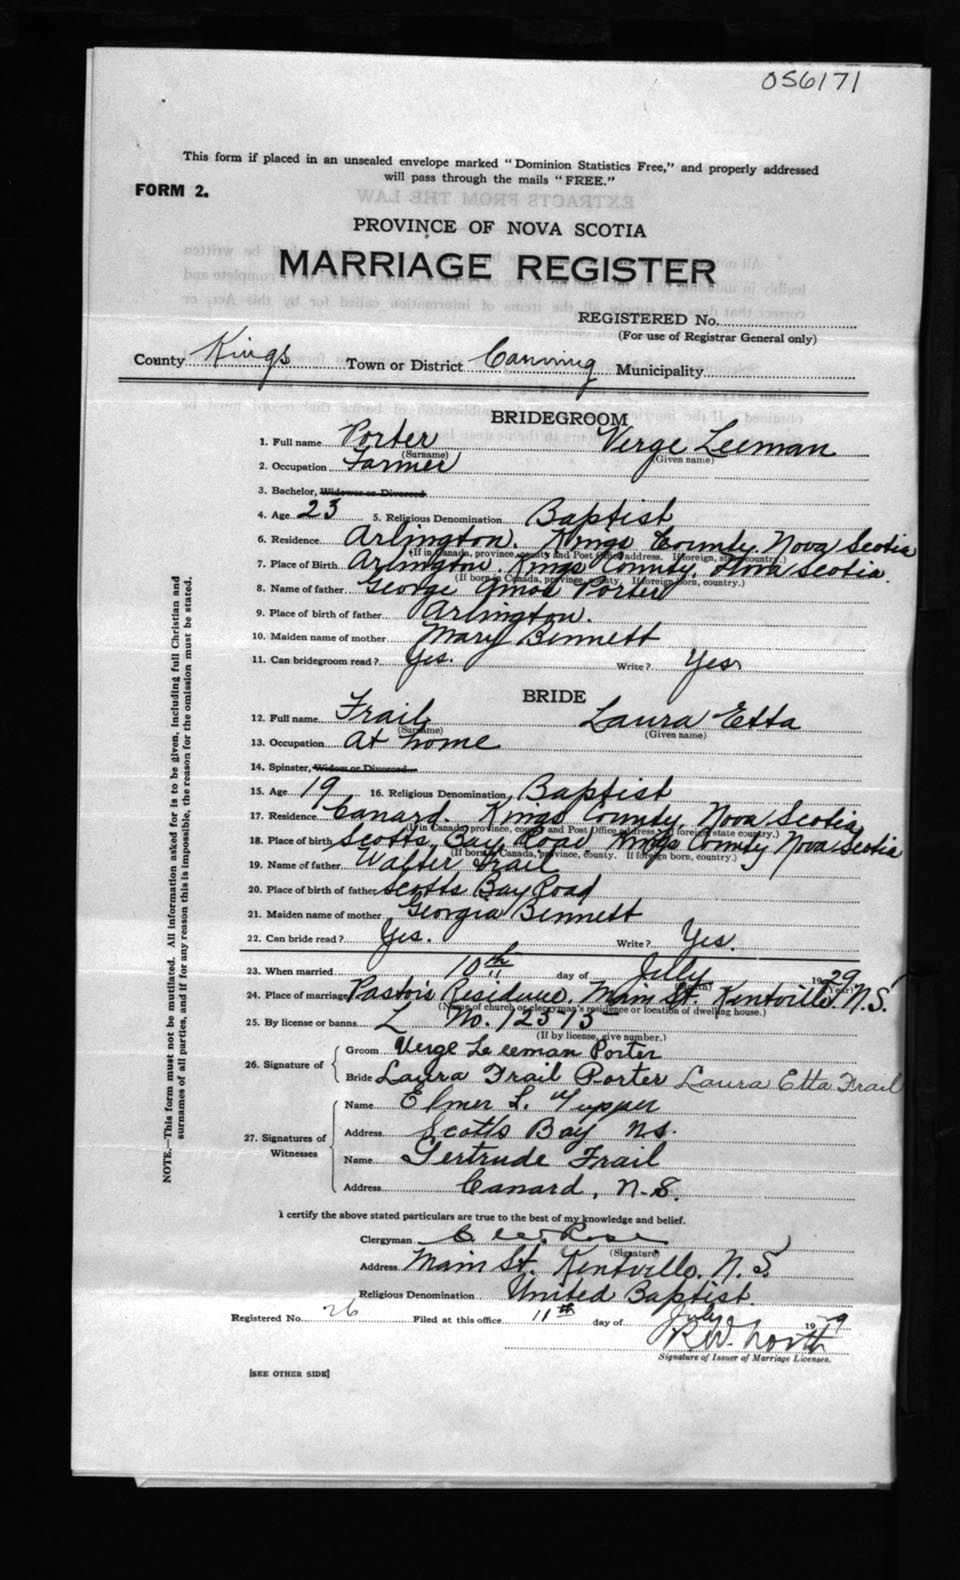 056171
This form if placed in an unsealed envelope marked "Dominion Statistics Free," and properly addressed
will pass through the mails "FREE."
FORM 2.
PROVINCE OF NOVA SCOTIA
MARRIAGE REGISTER
REGISTERED No.
(For use of Registrar General only)
County Kings Town or District Canning Municipality
BRIDEGROOM
1. Full name Porter Verge Leeman
(Surname) (Given name)
2. Occupation Farmer
3. Bachelor, Widower or Divorced
4. Age 23 5. Religious Denomination Baptist
6. Residence Arlington. Kings County. Nova Scotia
(If in Canada, province, county and Post Office address. If foreign, state country.)
7. Place of Birth Arlington. Kings County. Nova Scotia.
(If born in Canada, province, county. If foreign born, country.)
8. Name of father George Amos Porter
9. Place of birth of father Arlington.
10. Maiden name of mother Mary Bennett
11. Can bridegroom read? Yes. Write? Yes
BRIDE
12. Full name Frail Laura Etta
(Surname) (Given name)
13. Occupation At home
14. Spinster, Widow or Divorced
15. Age 19 16. Religious Denomination Baptist
17. Residence Canard. Kings County, Nova Scotia
(If in Canada, province, county and Post Office address. If foreign state country.)
18. Place of birth Scotts Bay Road Kings County Nova Scotia
(If born in Canada, province, county. If foreign born, country.)
19. Name of father Walter Frail
20. Place of birth of father Scotts Bay Road
21. Maiden name of mother Georgia Bennett
22. Can bride read? Yes. Write? Yes.
23. When married 10th day of July 1929
(Month) (Year)
24. Place of marriage Pastor's Residence. Main St. Kentville. N.S.
(Name of church or clergyman's residence or location of dwelling house.)
25. By license or banns L No. 12313
(If by license, give number.)
26. Signature of Groom Verge Leeman Porter
Bride Laura Frail Porter Laura Etta Frail
27. Signatures of Witnesses
Name Elmer L. Tupper
Address Scotts Bay N.S.
Name Gertrude Frail
Address Canard, N.S.
I certify the above stated particulars are true to the best of my knowledge and belief.
Clergyman Rose
(Signature)
Address Main St. Kentville. N.S.
Religious Denomination United Baptist
Registered No. 26 Filed at this office 11th day of July 1929
R.W. North
Signature of Issuer of Marriage Licenses.
[SEE OTHER SIDE]
NOTE.—This form must not be mutilated. All information asked for is to be given, including full Christian and
surnames of all parties, and if for any reason this is impossible, the reason for the omission must be stated.